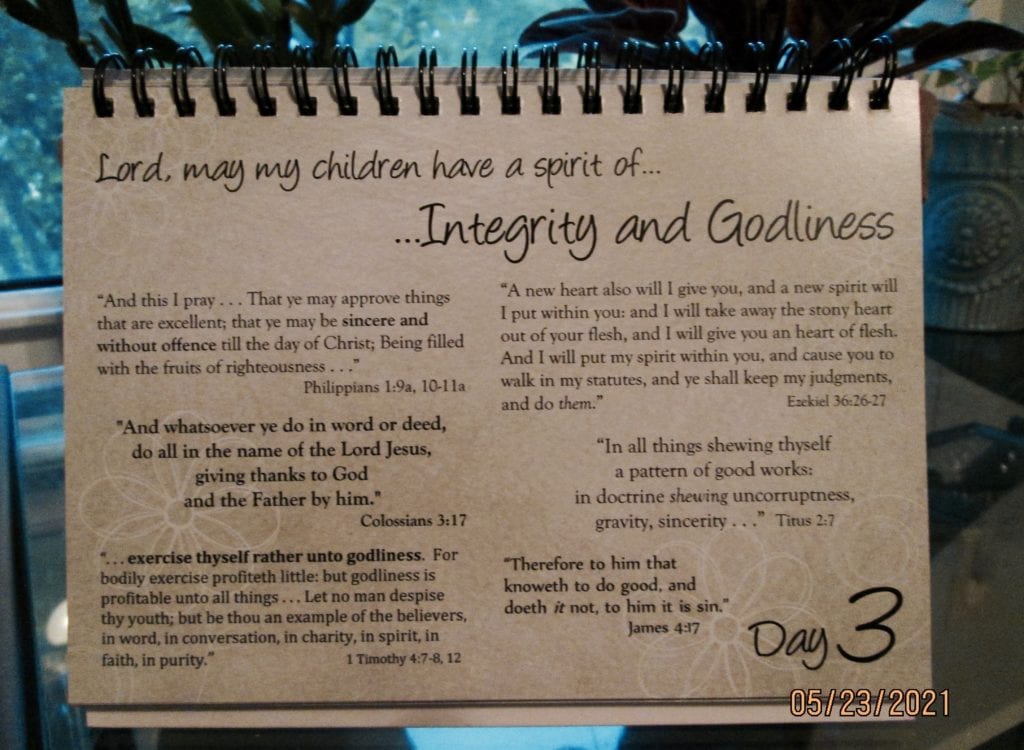 Lord, may my children have a spirit of...
...Integrity and Godliness
“And this I pray . . . That ye may approve things
that are excellent; that ye may be sincere and
without offence till the day of Christ; Being filled
with the fruits of righteousness . . .”
Philippians 1:9a, 10-11a
"And whatsoever ye do in word or deed,
do all in the name of the Lord Jesus,
giving thanks to God
and the Father by him."
Colossians 3:17
“. . . exercise thyself rather unto godliness. For
bodily exercise profiteth little: but godliness is
profitable unto all things . . . Let no man despise
thy youth; but be thou an example of the believers,
in word, in conversation, in charity, in spirit, in
faith, in purity.”
1 Timothy 4:7-8, 12
“A new heart also will I give you, and a new spirit will
I put within you: and I will take away the stony heart
out of your flesh, and I will give you an heart of flesh.
And I will put my spirit within you, and cause you to
walk in my statutes, and ye shall keep my judgments,
and do them.”
Ezekiel 36:26-27
“In all things shewing thyself
a pattern of good works:
in doctrine shewing uncorruptness,
gravity, sincerity . . .” Titus 2:7
“Therefore to him that
knoweth to do good, and
doeth it not, to him it is sin.”
James 4:17
Day 3
05/23/2021